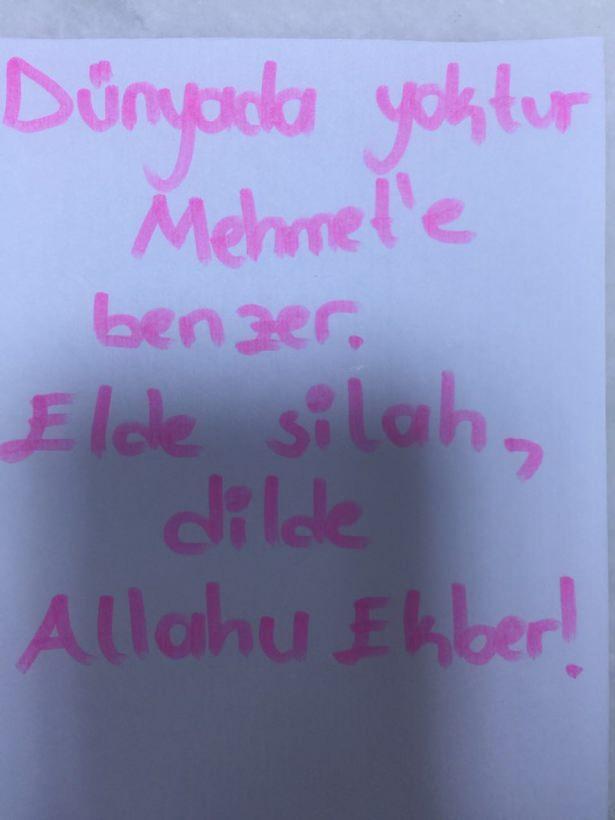 Dünyada yoktur
Mehmet'e
benzer.
Elde silah,
dilde
Allahu Ekber!